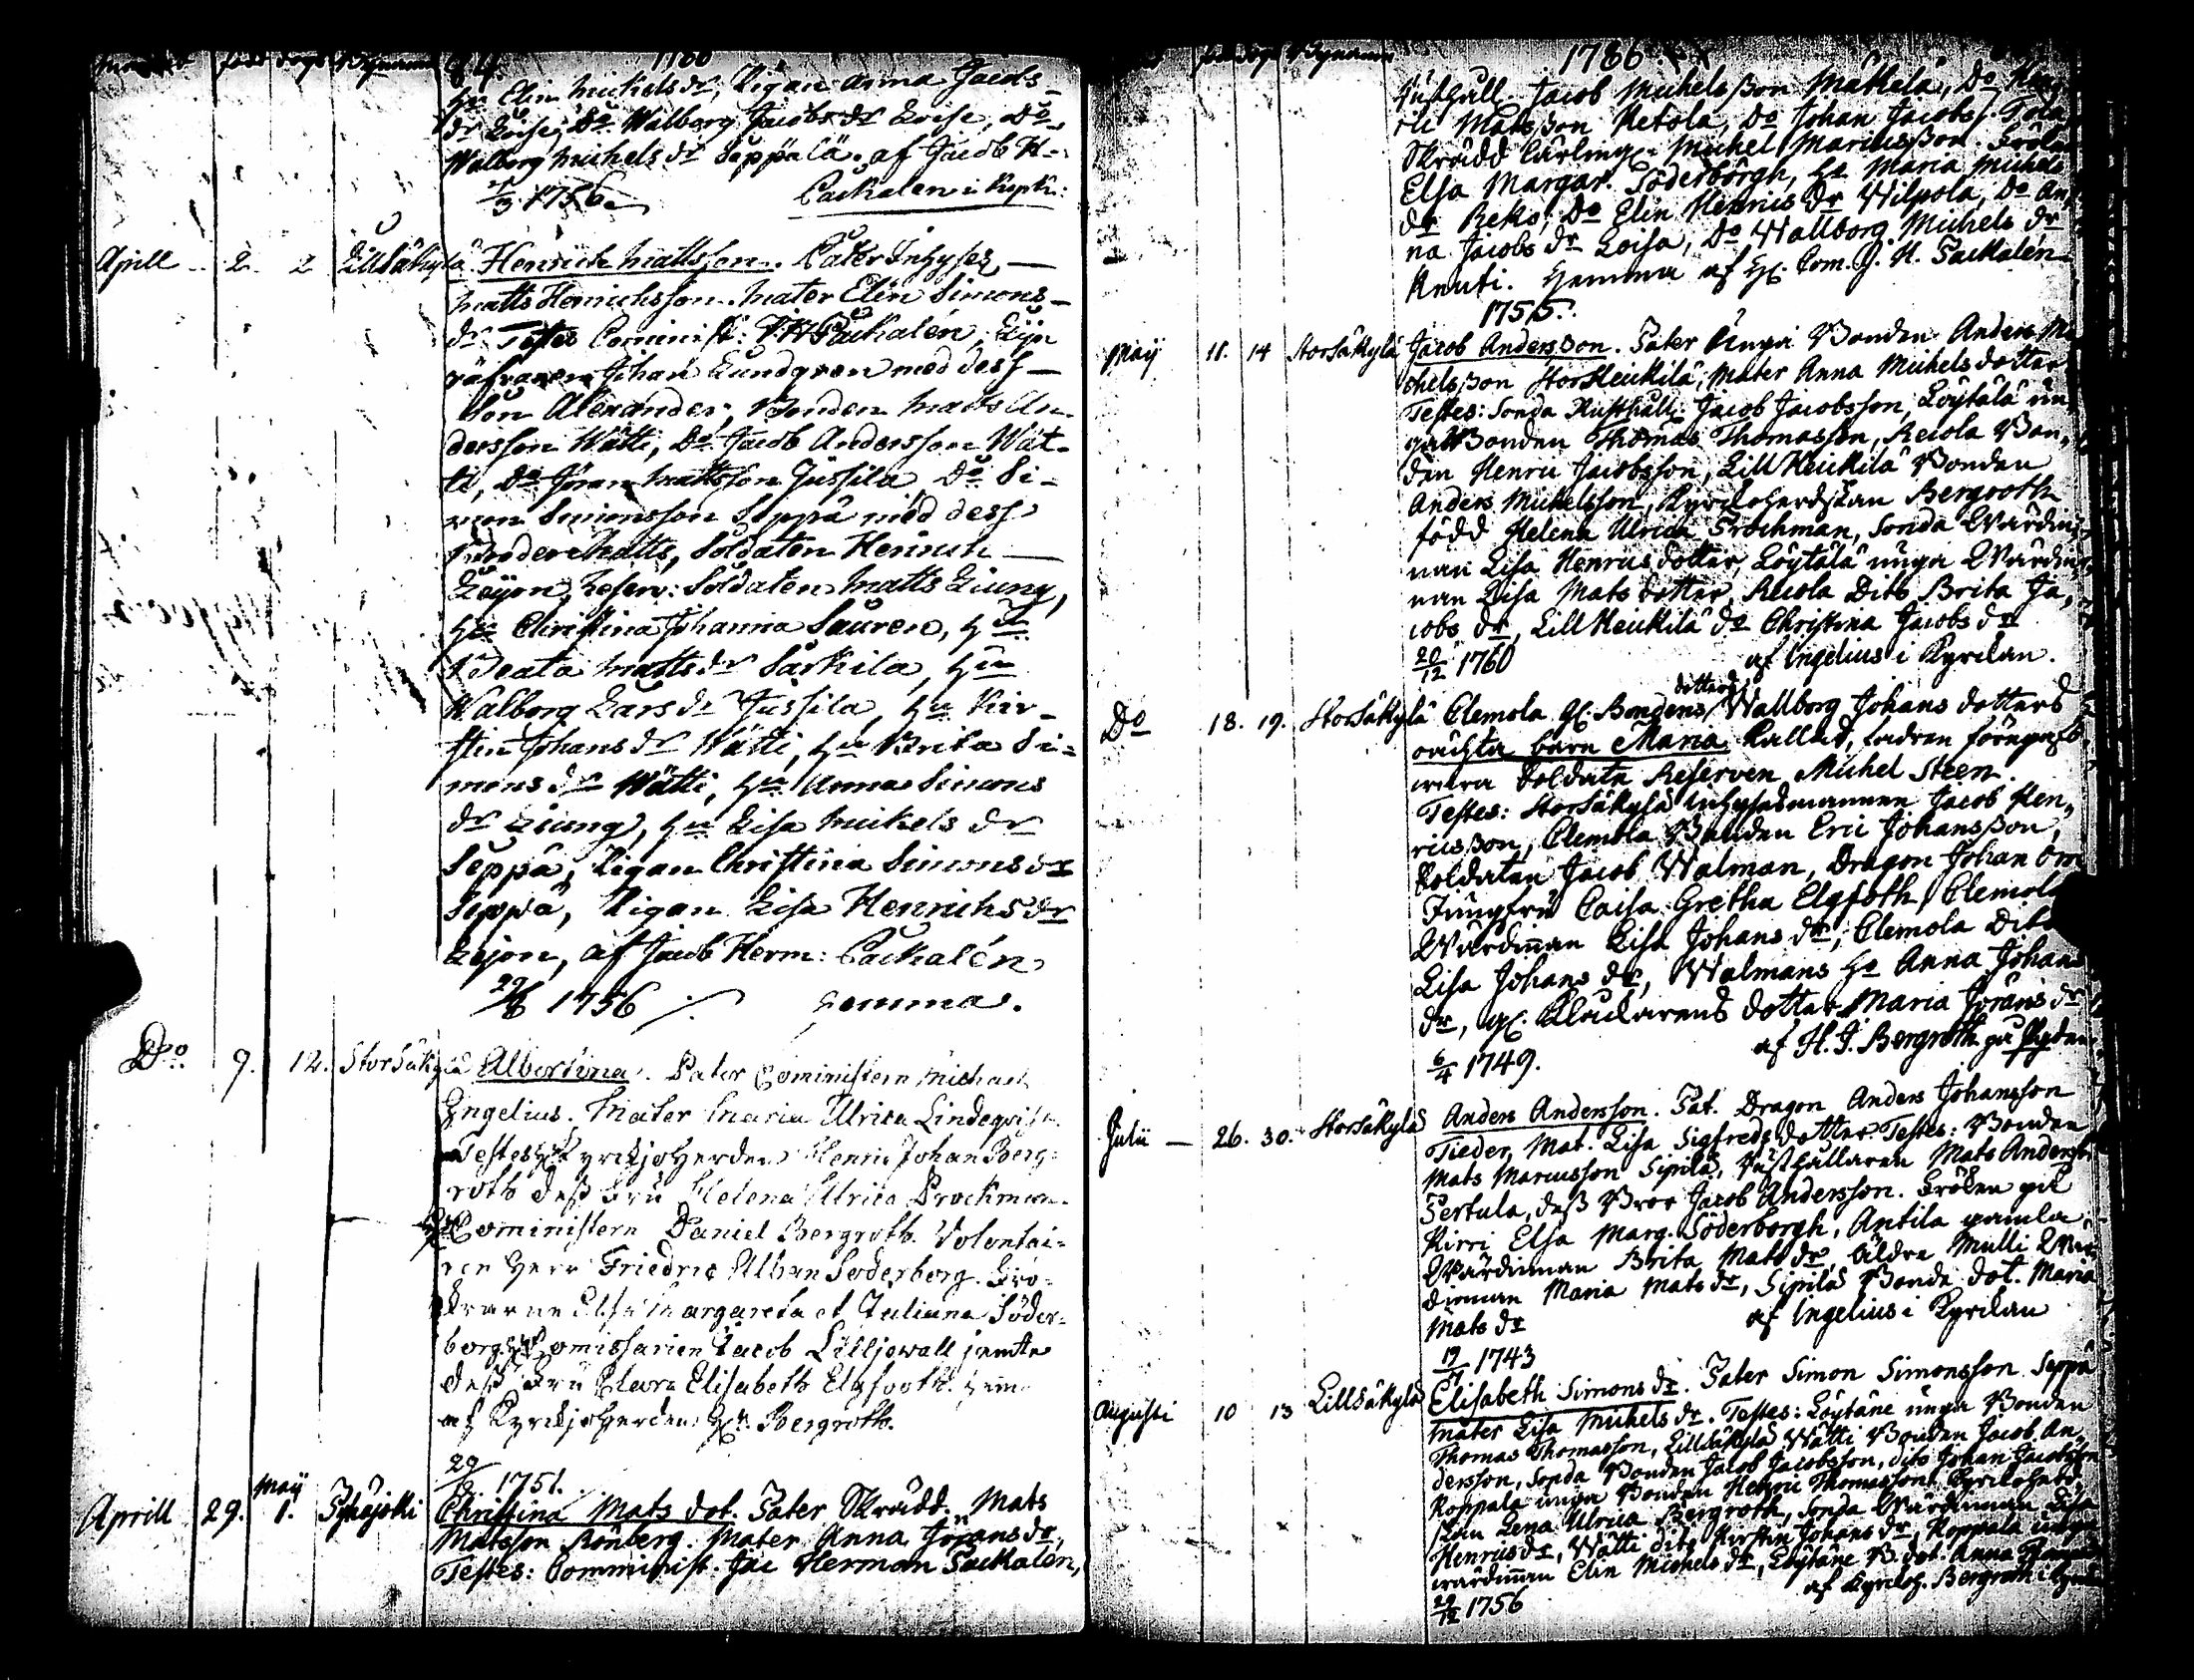 84.
1786
Hu Elin Mickels dr, Pigan Anna Jacobs
dr Loise, Do Walborg Jacobs dr Loise, Do
Walborg Michels dr Seppälä. af Jacob H=
3 1756. Packalen i Kyrk:
Aprill 2. 2 Lillsäkylä Henrich Mattsson. Pater Inhyses
Matts Henrichsson. Mater Elin Simons
dr. Testes Comminist: J: H: Packalén,
Johan Lundgren med dess
Son Alexander, Bonden Matts An
dersson Wätti, Do Jacob Andersson Wät-
ti, Do Jöran Mattsson Jussila Do Si-
mon Simonsson Seppä med dess
Broder Matts, Soldaten Henrich
Leijon, Reserv: Soldaten Matts Liung,
Hu Christina Johanna Sauren, Hu
Beata Matts dr Särkilä, Hu
Walborg Lars dr Jussila, Hu Kir-
stin Johans dr Wätti, Hu Brita Si=
mons dr Wätti, Hu Anna Simons
dr Liung, Hu Lisa Mickels dr
Seppä, Pigan Christina Simons dr
Seppä, Pigan Lisa Henrichs dr
Leijon, af Jacob Herm: Packalén
29 1756 hemma.
Do. 9. 12. Storsäkylä Albertina. Pater Cominstern Michael
Engelius. Mater Maria Ulrica Lindeqvist.
Testes Hr Kyrckjoherden Henric Johan Berg-
roth dess Fru Helena Ulrica Prockman.
Hr Cominstern Daniel Bergroth. Volontai=
ren Herr Friedric Alban Söderborg. Frö=
knarne Elsa Margareta et Juliana Söder=
borg, Hr Comissarien Jacob Lilljewall jemte
dess Fru Clara Elisabeth Elgfooth. hem
af Kyrckjoherden Hr. Bergroth.
29 1751.
Aprill 29. May 1. Pyhäjoki Christina Mats dot. Pater Skrädd. Mats
Matsson Rönberg. Mater Anna Jörans dr,
Testes: Comminist. Jac Herman Packalén,
1786
Rusthåll. Jacob Michelsson Mäkelä, Do Hen
ric Matsson Ketola, Do Johan Jacobs. Tola
Skrädd lärling: Michel Marcusson. Fröken
Elsa Margar. Söderborgh, Hu Maria Michels
dr Reko, Do Elin Henrics dr Wilpola, Do An,
na Jacobs dr Loisa, Do Wallborg Michels dr
Knuti. Hemma af H: Com. J. H. Packalén
1755.
Maij 11. 14 Storsäkylä Jacob Andersson. Pater Unga Bonden Anders Mi
chelsson StorHeickilä, Mater Anna Michels dotter
Testes: Sonda Rusthåll: Jacob Jacobsson, Löytälä un
ga Bonden Thomas Thomasson, Recola Bon,
den Henric Jacobsson, LillHeickilä Bonden
Anders Michelsson, Kyrckoherdskan Bergroth
född Helena Ulrica Prochman, Sonda Wärdin,
nan Lisa Henrics dotter, Löytälä unga Wärdin,
nan Lisa Mats dotter, Recola Dito Brita Ja,
cobs dr, LillHeickilä do Christina Jacobs dr
20/12 1760 af Engelius i Kyrckan.
Do 18. 19. Storsäkylä Clemola Gl: Bondens dotters Wallborg Johans dotters
oächta barn Maria kallad, fadren föregafs
wara Soldats Reserven Michel Steen.
Testes: Storsäkylä Inhysesmannen Jacob Hen,
ricsson, Clemola Bonden Eric Johansson,
Soldaten Jacob Walman, Dragon Johan
Jungfru Caisa Gretha Elgfoth, Clemola
Wärdinnan Lisa Johans dr, Clemola Dito
Lisa Johans dr, Walmans Hu Anna Johans
dr, gl. Klackarens dotter Maria Jörans dr
6/4 1749. af H. J. Bergroth
Julii 26. 30. Storsäkylä Anders Andersson. Pat. Dragon Anders Johansson
Tieder, Mat. Lisa Sigfreds dotter. Testes: Bonden
Mats Marcusson Sipilä, Rusthållaren Mats Andersson
Pertula, dess Bror Jacob Andersson. Fröken på
Kirri Elsa Marg. Söderborgh, Antila gamla
Wärdinnan Brita Mats dr, äldre Mulli Wär
dinnan Maria Mats dr, Sipilä Bonde dot. Maria
Mats dr af Engelius i Kyrckan
19 1743
Augusti 10 13 Lillsäkylä Elisabeth Simons dr. Pater Simon Simonsson Seppä
Mater Lisa Michels dr. Testes: Löytäne unga Bonden
Thomas Thomasson, Lillsäkylä Wätti Bonden Jacob An,
dersson, Sonda Bonden Jacob Jacobsson, dito Johan Jacobsson
Koppala unga Bonden Henric Thomasson, Kyrckoherd
skan Lena Ulrica Bergroth, Sonda Wärdinnan Lisa
Henrics dr, Wätti dito Kirstin Johans dr, Koppala unga
wärdinnan Elin Michels dr, Löytäne B. dot. Anna
29/12 1756 af Kyrckoh. Bergroth i Kyrck